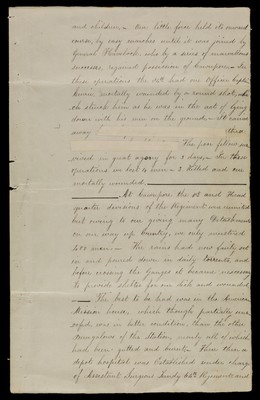 and children. — Our little force held its onward
course, by easy marches until it was joined by
General Havelock, who by a series of
successes, regained possession of Cawnpore. — In
these operations the 64th had one Officer Captn
mortally wounded by a round shot, wh
ch struck him as he was in the act of lying
down with his men on the ground. — It carried
away
The poor fellow sur
vived in great agony for 3 days. In these
operations we lost 4 men — 3 Killed and one
mortally wounded. —
At Cawnpore the 1st and Head
quarter divisions of the Regiment were reunited
but owing to our giving many detachments
on our way up Country, we only mustered
500 men. — The rains had now fairly set
in and poured down in daily torrents, and
before crossing the Ganges it became necessary
to provide shelter for our sick and wounded
The best to be had was in the American
Mission house, which though partially unr
oofed, was in better condition, than the other
bungalows of the Station, nearly all of which
had been gutted and burnt. — Here then a
depot hospital was established under charge
of Assistant Surgeon 64th Regiment and